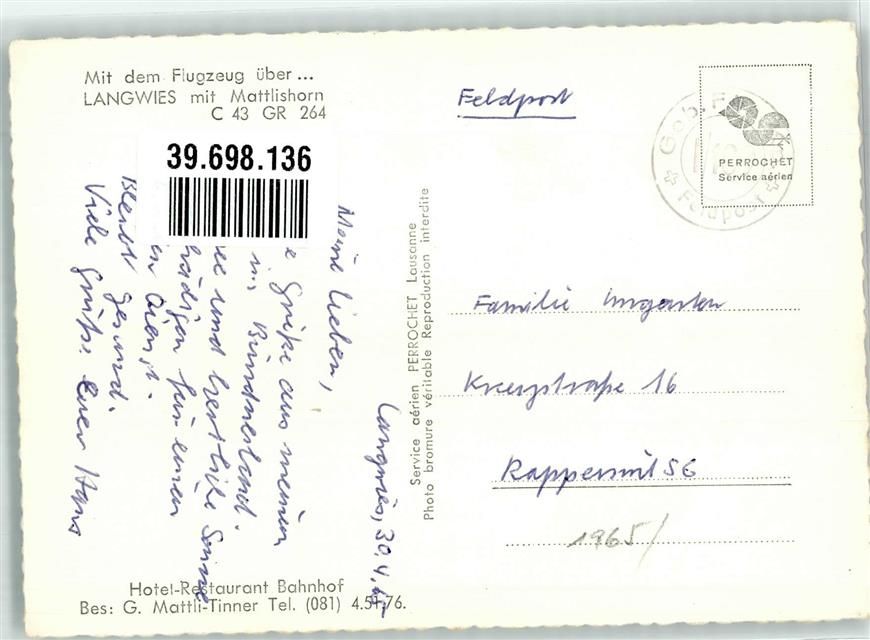 Mit dem Flugzeug über...
LANGWIES mit Mattlishorn
C 43 GR 264
39.698.136
Langwies, 30.4.
Meine Lieben,
Grüße aus meinem
Bündnerland.
und herrliche Sonne
für einen
Dienst.
Bleibt gesund.
Viele Grüße Euer Hans
Hotel-Restaurant Bahnhof
Bes: G. Mattli-Tinner Tel. (081) 4.51.76.
Service aérien PERROCHET Lausanne
Photo bromure véritable Reproduction interdite
Feldpost
PERROCHET
Service aérien
Geb. F
Feldpost
Familie
Kreuzstraße 16
Rapperswil SG
1965/